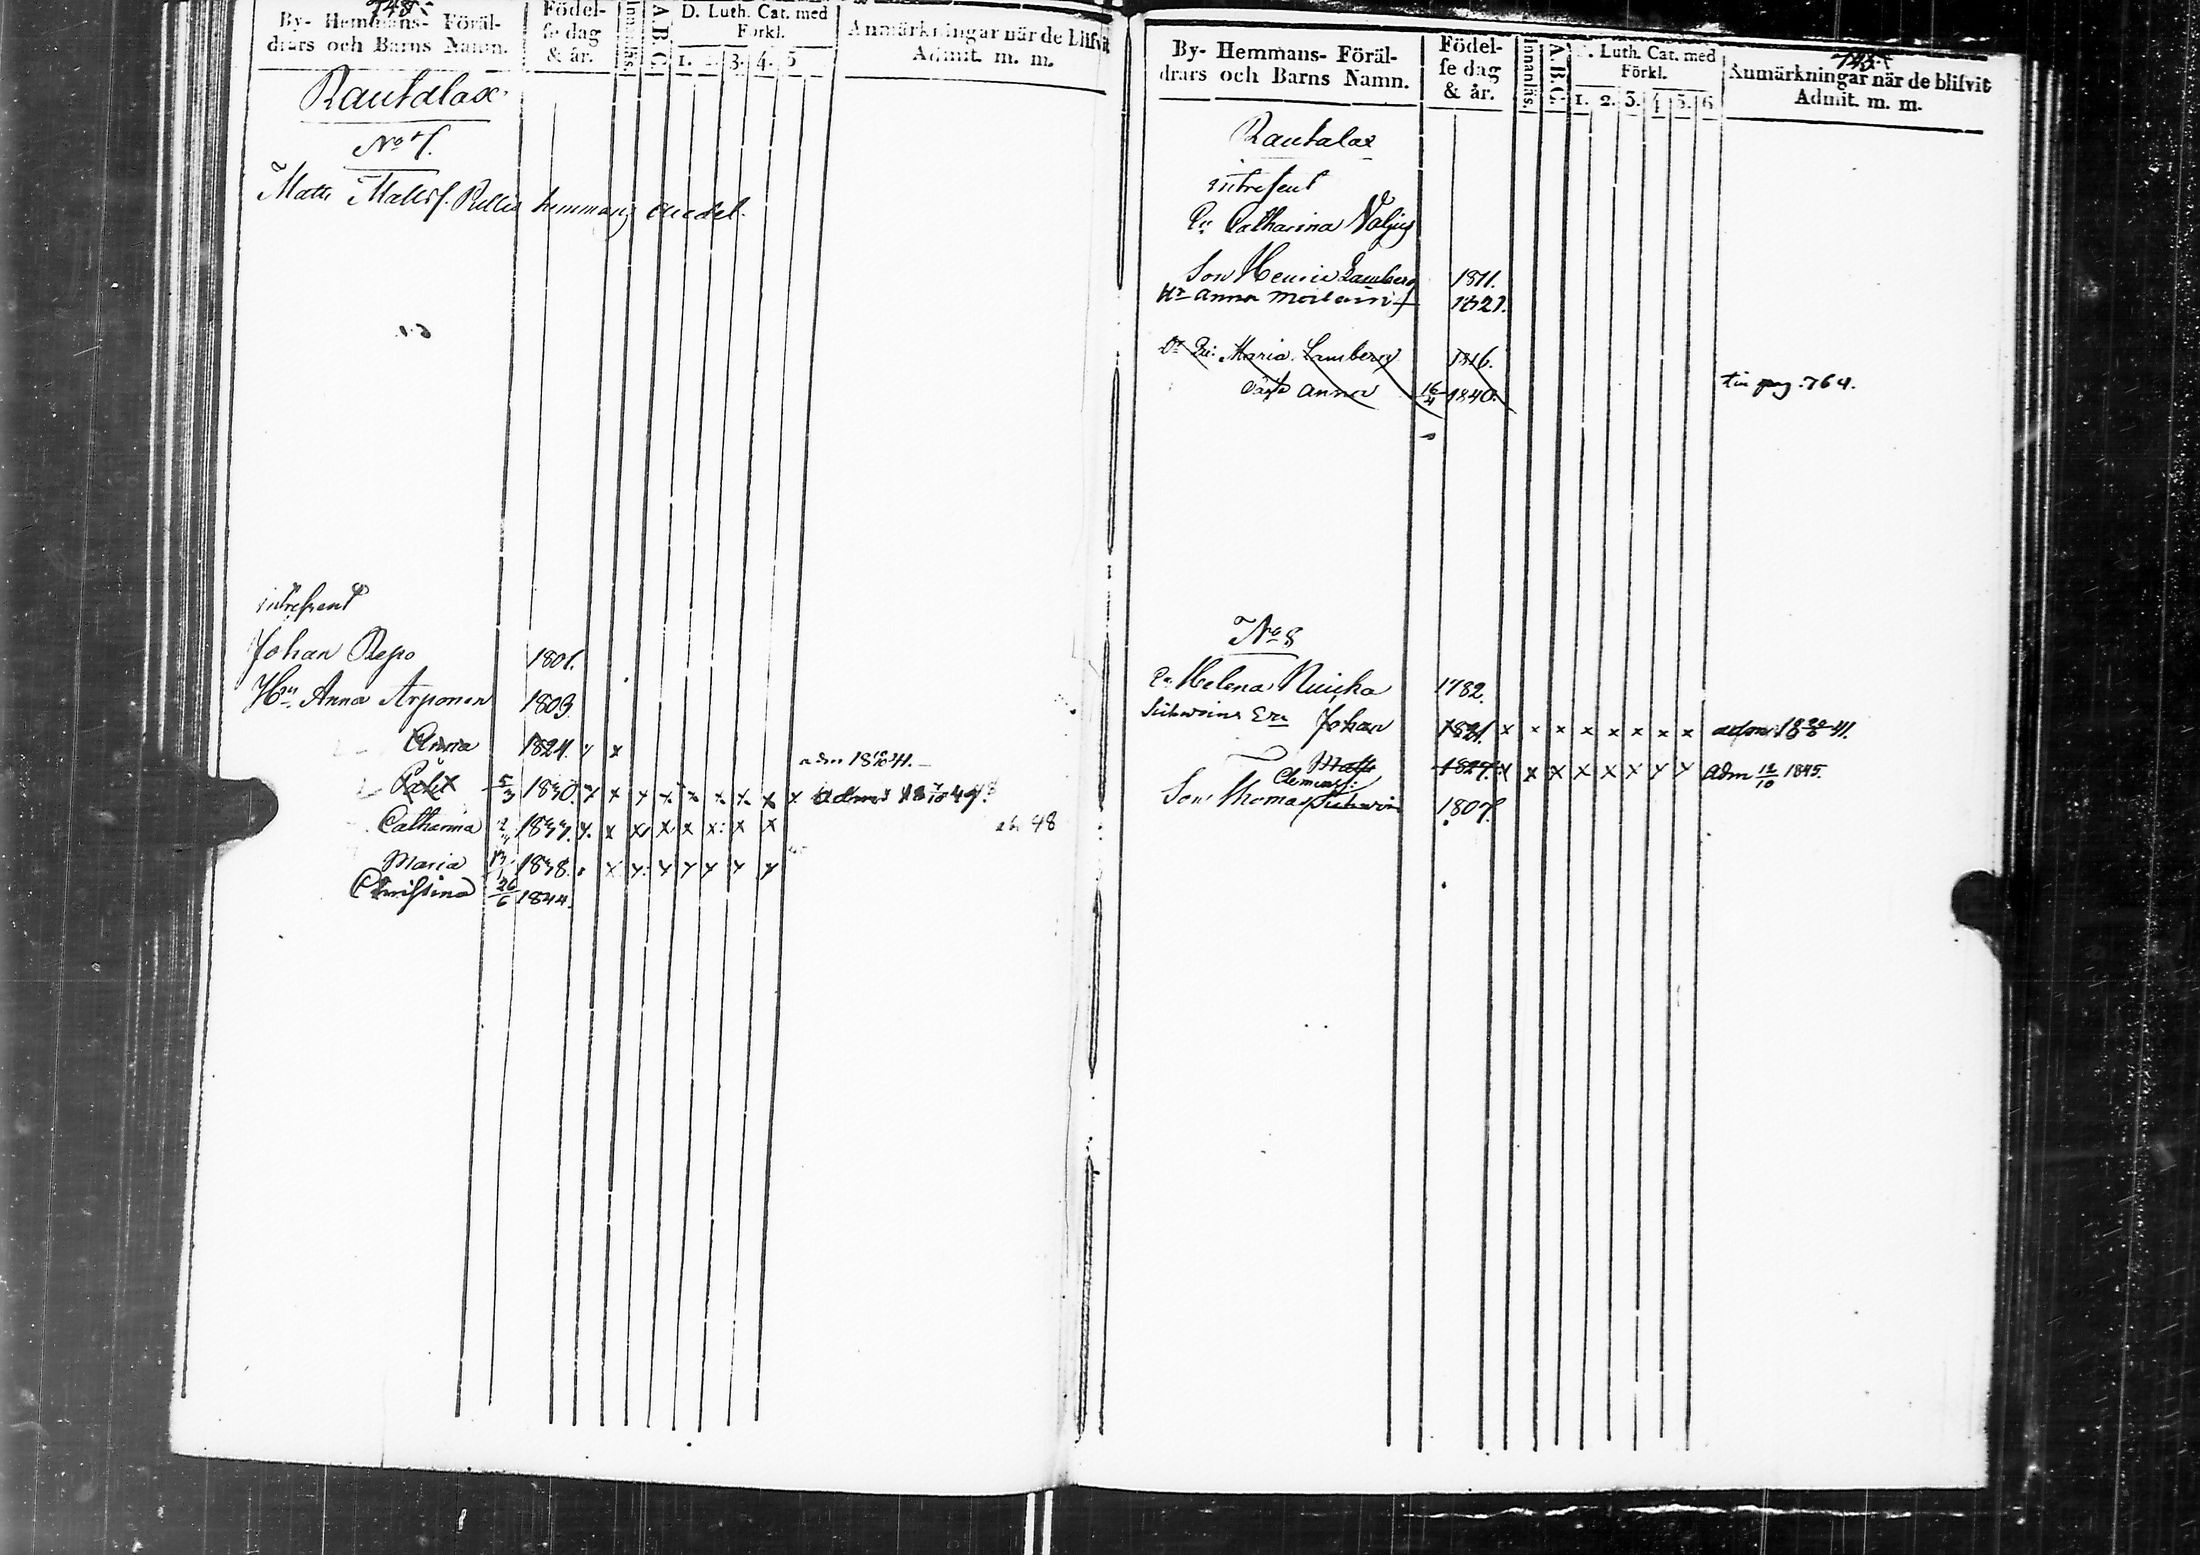 745
By- Hemmans- Föräl-
drars och Barns Namn.
Födel-
se dag
& år.
Innanläs.
A. B. C.
D. Luth. Cat. med
Förkl.
1. 2. 3. 4. 5
Anmärkningar när de blifvit
Admit. m. m.
Rautalax
No 7.
Matts Mattsf. hemmans andel.
intressent
Johan Repo 1801.
Hu. Anna Arponen 1803.
Anna 1824. x x adm 18 41.
Påhl 5/3 1830. x x x x x x x x x adm 18 7/10 49.
Catharina 1833. x x x x x x x x ab 48
Maria 1838. x x x x x x x
Christina 26/6 1844.
745
By- Hemmans- Föräl-
drars och Barns Namn.
Födel-
se dag
& år.
Innanläs.
A. B. C.
D. Luth. Cat. med
Förkl.
1. 2. 3. 4. 5. 6
Anmärkningar när de blifvit
Admit. m. m.
Rautalax
intressent
Catharina Valjus
Son Henric Lamberg 1811.
Hu Anna 1821.
Maria Lamberg 1816.
Anna 16/4 1840. pag. 764.
No 8
Helena Ruicka 1782.
Johan 1821. x x x x x x x x adm 18 41.
Matts 1827. x x x x x x x x adm 12/10 1845.
Clemensf:
Son Thomas 1807.